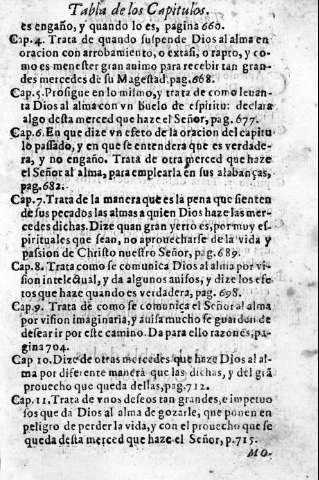 Tabla de los Capitulos.
es engaño, y quando lo es, pagina 660.
Cap. 4. Trata de quando suspende Dios al alma en
oracion con arrobamiento, o extasi, o rapto, y co-
mo es menester gran animo para recibir tan gran-
des mercedes de su Magestad. pag. 668.
Cap. 5. Prosigue en lo mismo, y trata de como leuan-
ta Dios al alma con vn buelo de espiritu: declara
algo desta merced que haze el Señor, pag. 677.
Cap. 6. En que dize vn efeto de la oracion del capitu
lo passado, y en que se entendera que es verdade-
ra, y no engaño. Trata de otra merced que haze
el Señor al alma, para emplearla en sus alabanças,
pag. 682.
Cap. 7. Trata de la manera que es la pena que sienten
de sus pecados las almas a quien Dios haze las mer-
cedes dichas. Dize quan gran yerro es, por muy es-
pirituales que sean, no aprouecharse de la vida y
passion de Christo nuestro Señor, pag. 689.
Cap. 8. Trata como se comunica Dios al alma por vi-
sion intelectual, y da algunos auisos, y dize los efe-
tos que haze quando es verdadera, pag. 698.
Cap. 9. Trata de como se comunica el Señor al alma
por vision imaginaria, y auisa mucho se guarden de
dessear ir por este camino. Da para ello razones, pa-
gina 704.
Cap 10. Dize de otras mercedes que haze Dios al al-
ma por diferente manera que las dichas, y del grã
prouecho que queda dellas, pag. 712.
Cap. 11. Trata de vnos deseos tan grandes, e impetuo
sos que da Dios al alma de gozarle, que ponen en
peligro de perder la vida, y con el prouecho que se
queda desta merced que haze el Señor, p. 715.
MO-